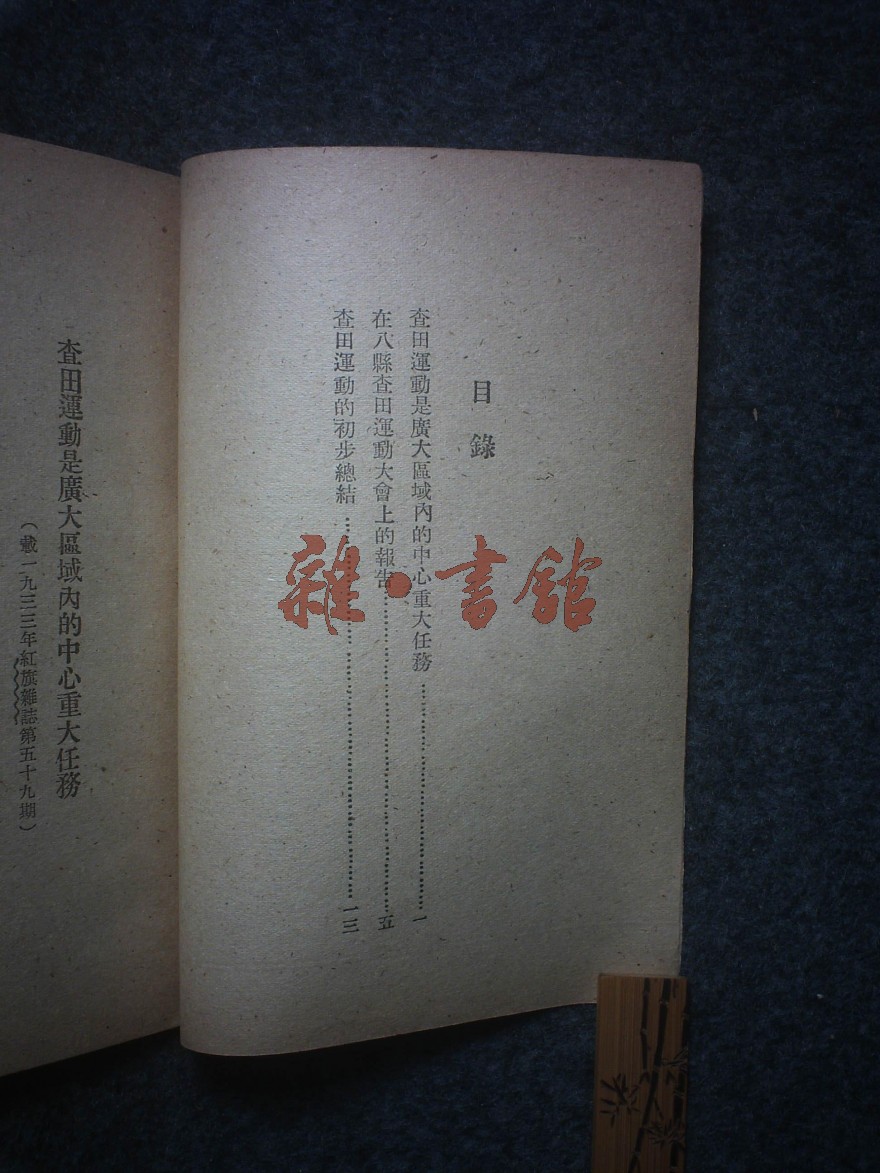 目錄
查田運動是廣大區域內的中心重大任務……一
在八縣查田運動大會上的報告……五
查田運動的初步總結……一三
查田運動是廣大區域內的中心重大任務
（載一九三三年紅旗雜誌第五十九期）
雜·書館